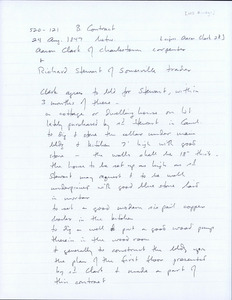 320-121 B Contract
29 Aug. 1847 betw.
Aaron Clark of Charlestown carpenter
&
Richard Stewart of Somerville trader
Clark agrees to bld for Stewart, within
3 months of these
a cottage or dwelling house on lot
lately purchased by sd Stewart in Camb
to dig & stone the cellar under main
bldg & kitchen 7' high with good
stone - the walls shall be 18" thick
the house to be set up as high as sd
Stewart may request & to be well
underpinned with good blue stone laid
in mortar
to set a good modern size pail copper
boiler in the kitchen
to dig a well & put a good wood pump
therein in the wood room
& generally to construct the bldg upon
the plan of the first floor presented
by sd Clark & made a part of
this contract